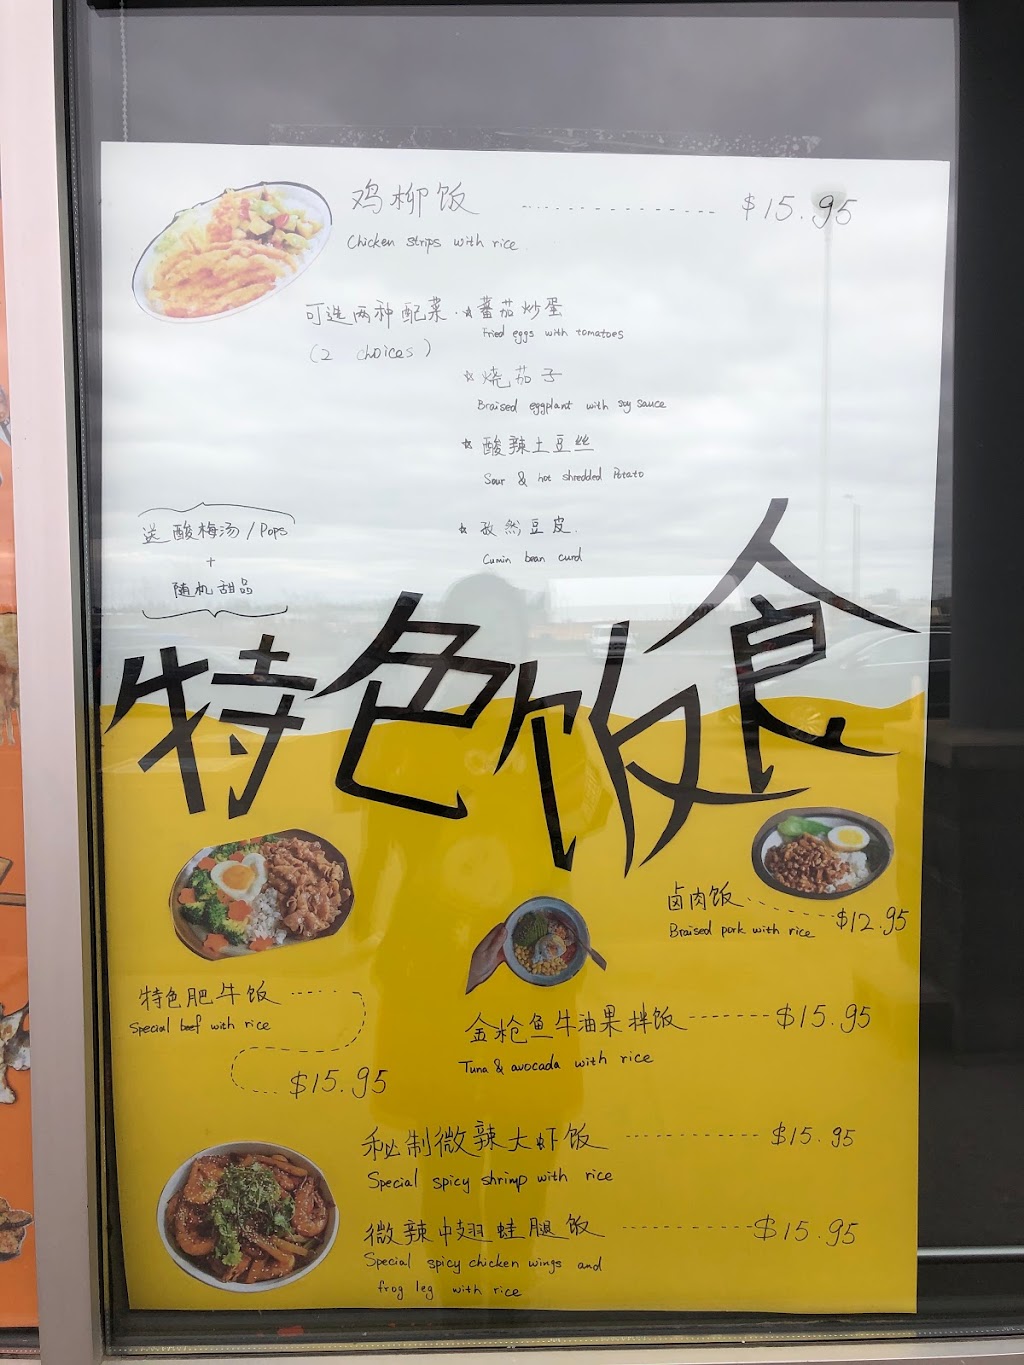 鸡柳饭 ---------- $15.95
Chicken strips with rice
可选两种配菜. ☆ 蕃茄炒蛋
(2 choices)
Fried eggs with tomatoes
☆ 烧茄子
Braised eggplant with soy sauce
☆ 酸辣土豆丝
Sour & hot shredded Potato
☆ 孜然豆皮.
Cumin bean curd
送 酸梅汤 / Pops
+
随机甜品
特色饭食
卤肉饭 ------ $12.95
Braised pork with rice
特色肥牛饭
Special beef with rice
$15.95
金枪鱼牛油果拌饭 ------ $15.95
Tuna & avocado with rice
秘制微辣大虾饭 ---------- $15.95
Special spicy shrimp with rice
微辣中翅蛙腿饭 ---------- $15.95
Special spicy chicken wings and
frog leg with rice